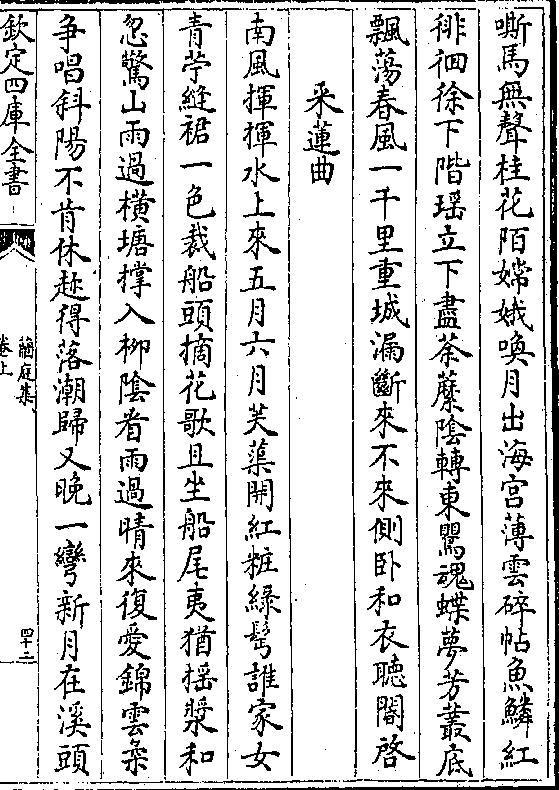 嘶馬無聲桂花陌嫦娥喚月出海宫薄雲碎帖魚鱗紅
徘徊徐下階瑶立下盡荼蘼隂轉東鸎魂蝶夢芳叢底
飄蕩春風一千里重城漏斷來不來側卧和衣聽閽啓
采蓮曲
南風揮揮水上來五月六月芙蕖開紅粧緑髩誰家女
青苧縫裙一色裁船頭摘花歌且坐船尾夷猶揺槳和
忽驚山雨過横塘撑入栁隂看雨過晴來復愛錦雲稠
爭唱斜陽不肯休趂得落潮歸又晚一彎新月在溪頭
欽定四庫全書
藺庭集
卷上
四十二